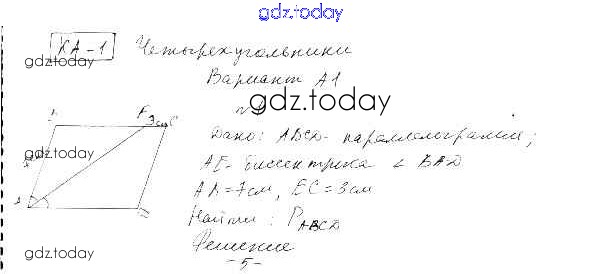 gdz.today
КА-1 Четырехугольники
gdz.today
Вариант А1
gdz.today
№1
Дано: ABCD- параллелограмм;
gdz.today
AE- биссектриса ∠ BAD
AB=7см, EC=3см
Найти: P_ABCD
Решение
gdz.today
gdz.today
-5-
E
3см C
A
D